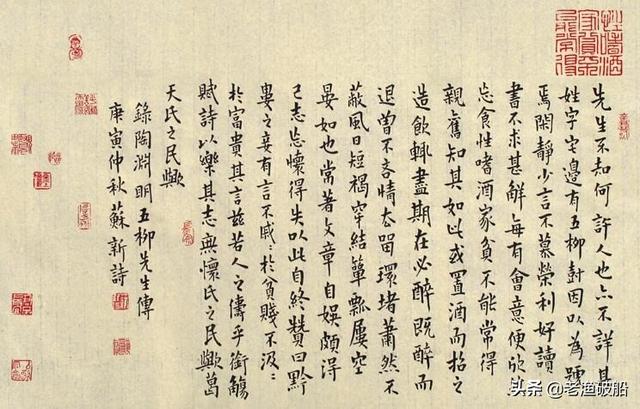 先生不知何許人也亦不詳其
姓字宅邊有五柳樹因以為號
焉閑靜少言不慕榮利好讀
書不求甚解每有會意便欣
忘食性嗜酒家貧不能常得
親舊知其如此或置酒而招之
造飲輒盡期在必醉既醉而
退曾不吝情去留環堵蕭然不
蔽風日短褐穿結簞瓢屢空
晏如也常著文章自娛頗得
己志忘懷得失以此自終贊曰黔
婁之妻有言不戚〻於貧賤不汲〻
於富貴其言茲若人之儔乎銜觴
賦詩以樂其志無懷氏之民歟葛
天氏之民歟
錄陶淵明五柳先生傳
庚寅仲秋蘇新詩
头条 @老渔破船